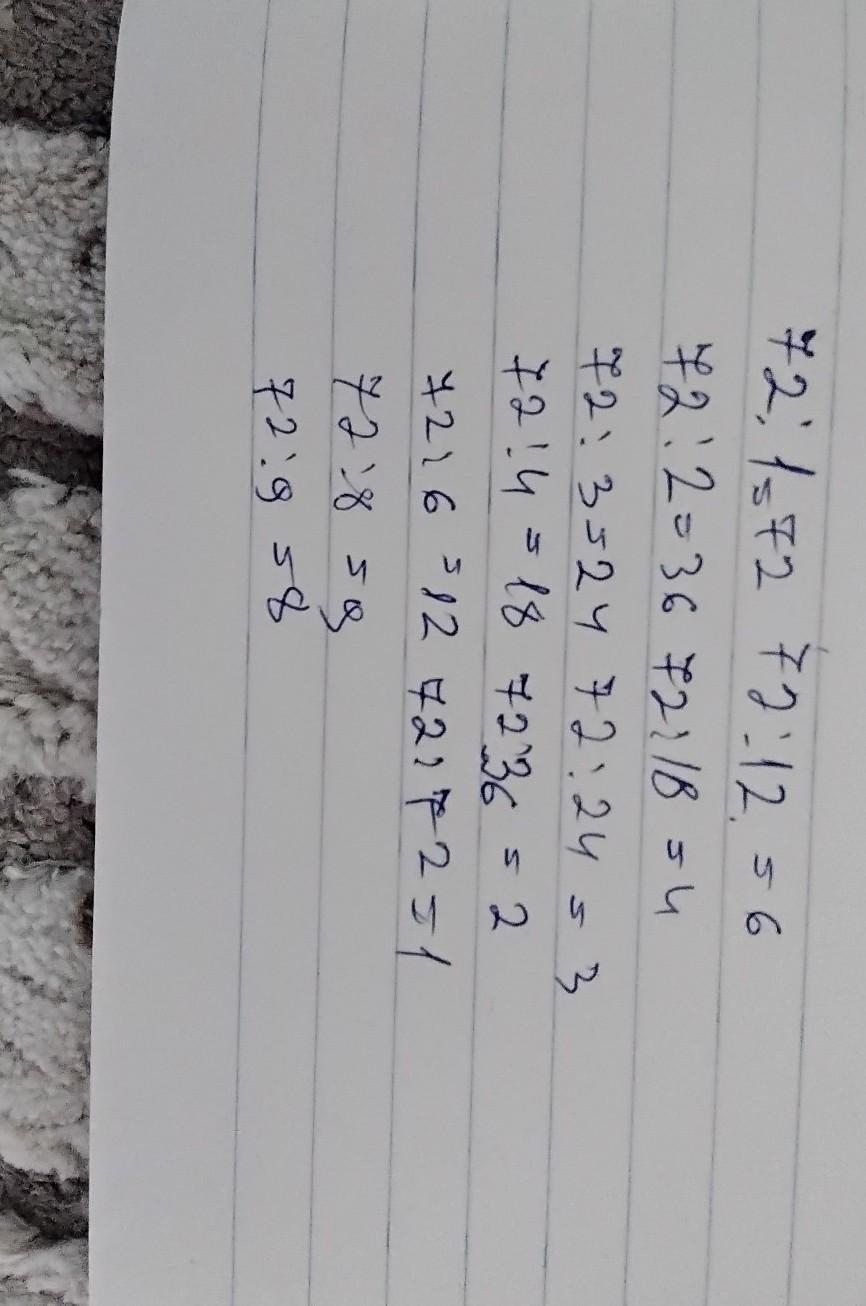 72:1=72 72:12=6
72:2=36 72:18=4
72:3=24 72:24=3
72:4=18 72:36=2
72:6=12 72:72=1
72:8=9
72:9=8